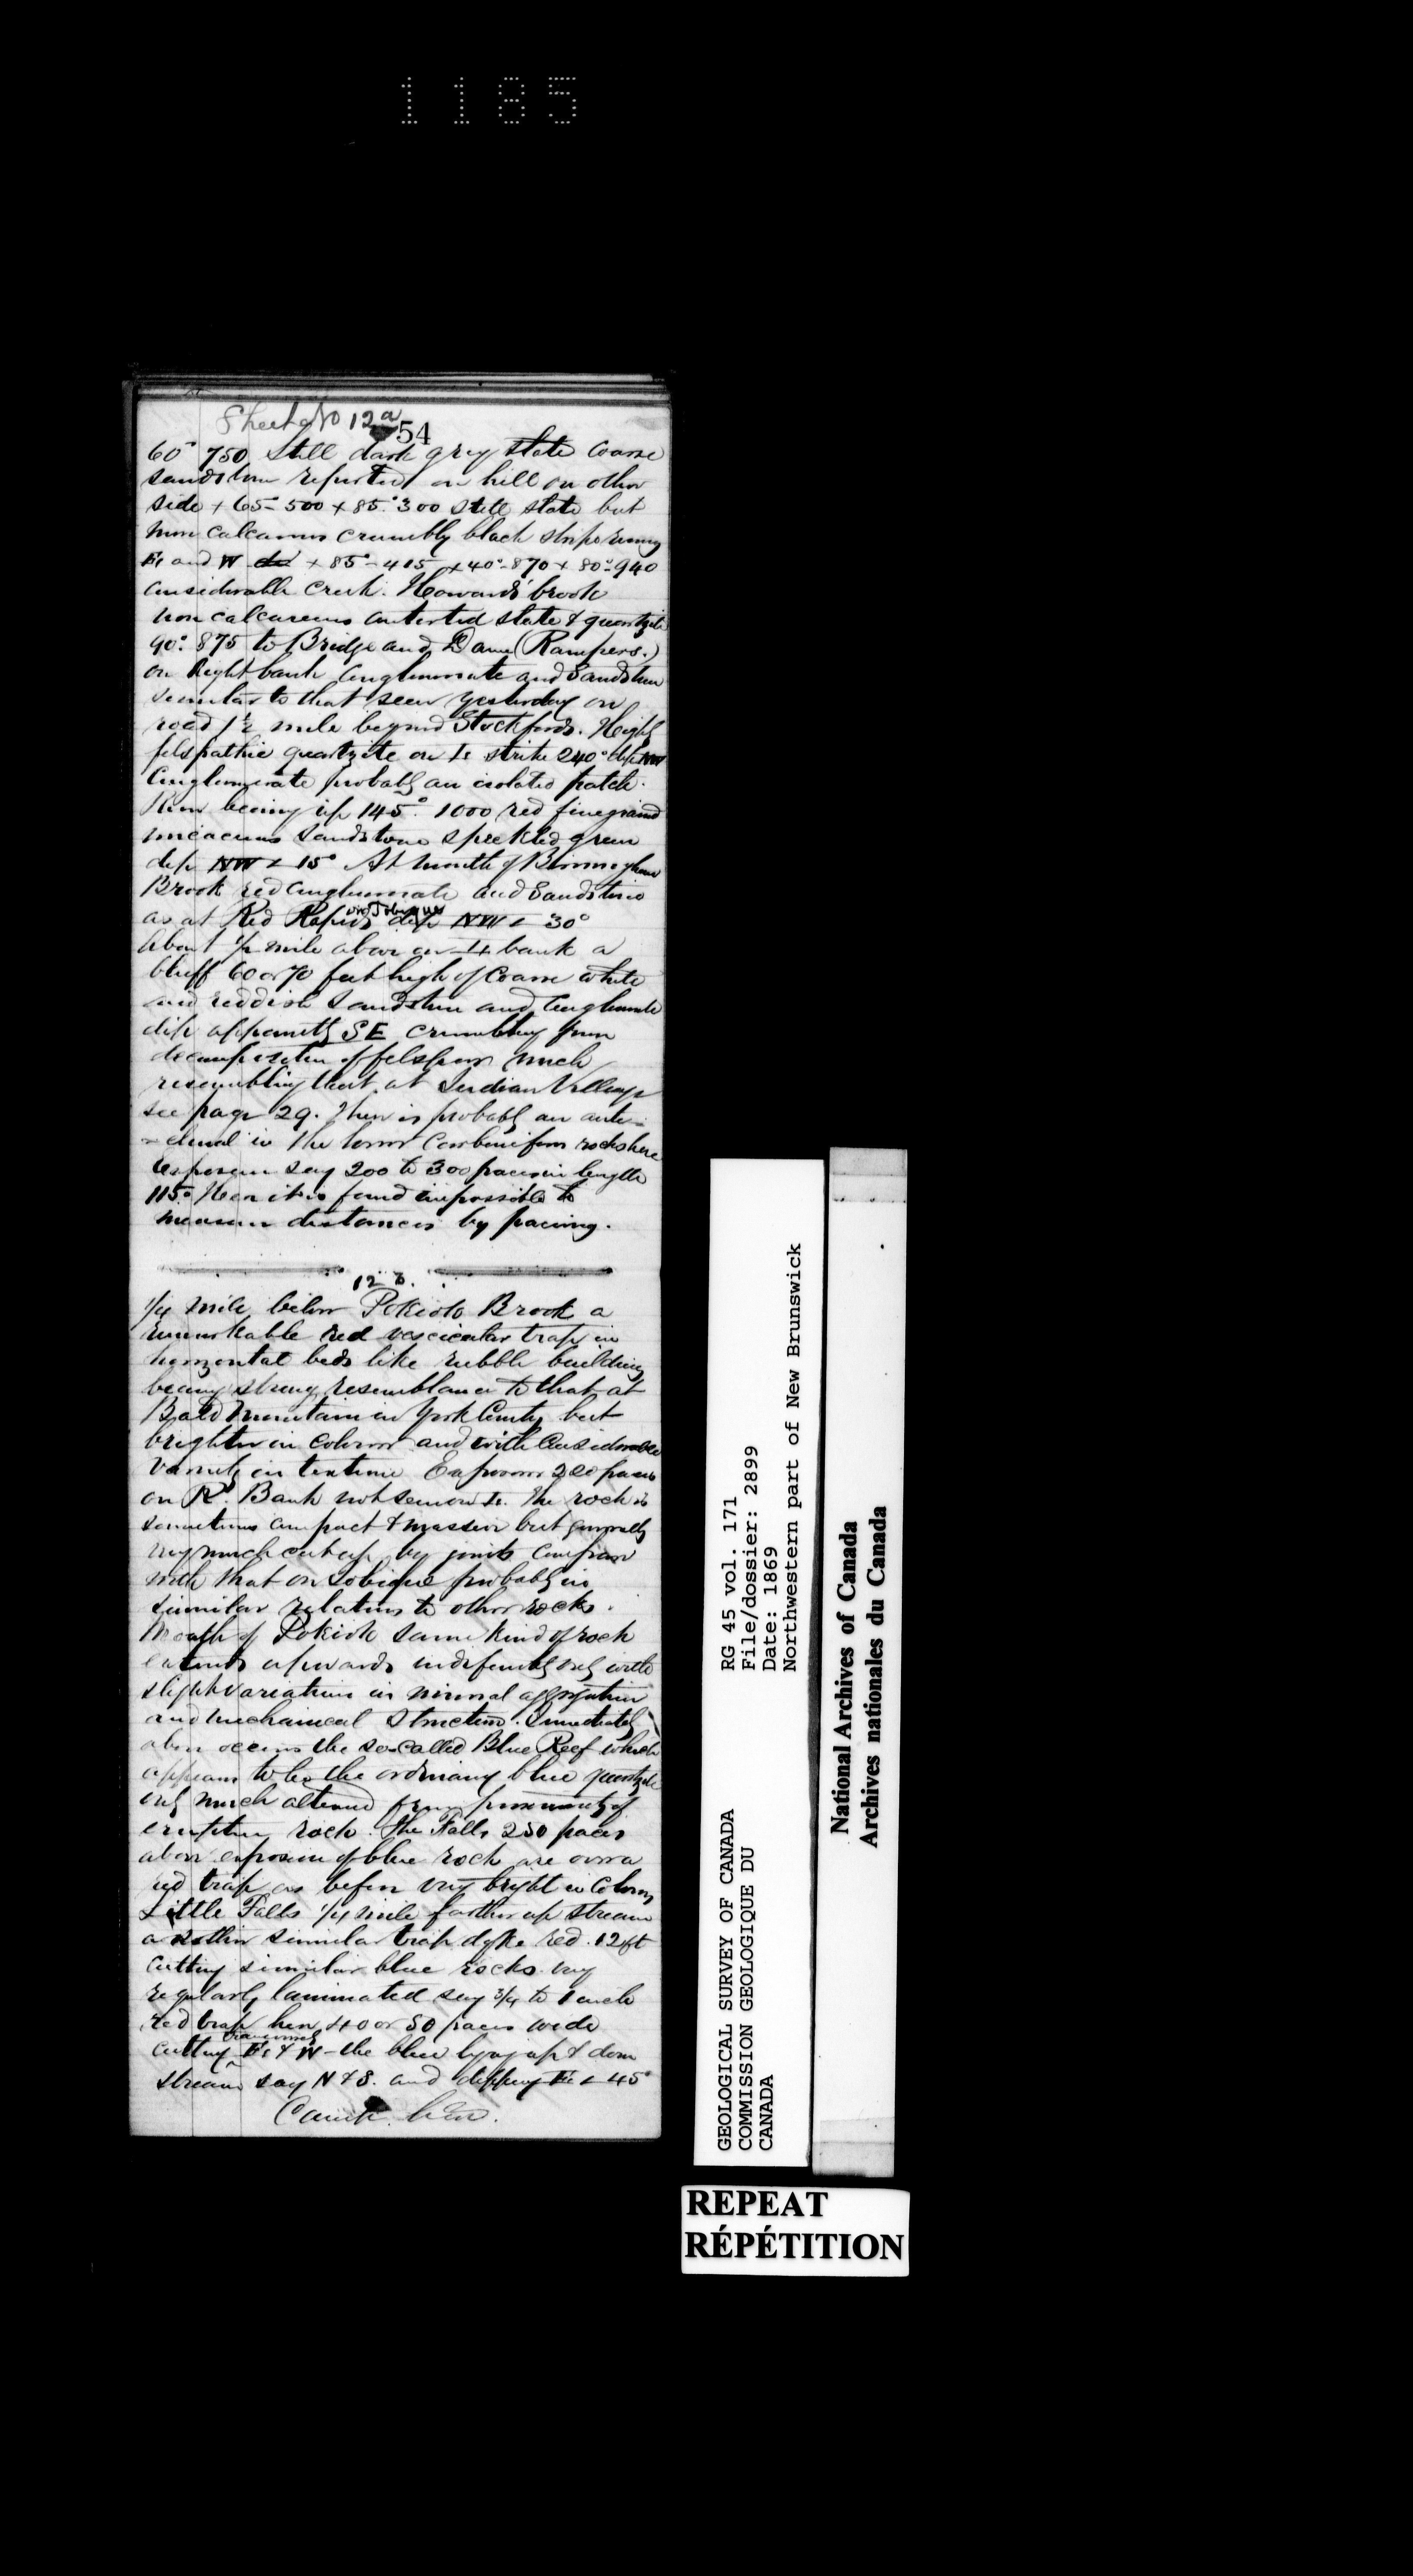 1185
Sheet No 12a
54
60° 750 Still dark grey slate coarse
sandstone reported on hill on other
side + 65° 500 + 85° 300 still slate but
more calcareous crumbly black strips running
E and W + 85° - 415 + 40° - 870 + 80° - 940
considerable creek. Howard's brook
non calcareous contorted slate & quartzite
90° 875 to Bridge and Dam (Kampers.)
on Right bank Conglomerate and Sandstone
similar to that seen yesterday on
road 1½ mile beyond Stockfords. Highly
felspathic quartzite on Lt strike 240° dip NW
Conglomerate probably an isolated patch.
145° 1000 red finegrained
micaceous Sandstone speckled green
dip NW < 15° At mouth of Birmingham
Brook red Conglomerate and Sandstone
as at Red Rapids on Tobique dip NW < 30°
About ½ mile above on Lt bank a
bluff 60 or 70 feet high of coarse white
and reddish Sandstone and Conglomerate
dip apparently SE crumbling from
decomposition of felspar much
resembling that at Indian Village
see page 29. There is probably an anti-
-clinal in the lower Carboniferous rocks here
exposure say 200 to 300 paces in length
115° Here it is found impossible to
measure distances by pacing.
12 b.
1/4 mile below Pokiok Brook a
remarkable red vescicular trap in
horizontal beds like rubble building
bearing strong resemblance to that at
Bald Mountain in York County but
brighter in colour and with considerable
variety in texture Exposure 200 paces
on Rt Bank not seen on Lt. The rock is
sometimes compact & massive but generally
very much cut up by joints compare
with that on Tobique probably in
similar relations to other rocks.
Mouth of Pokiok same kind of rock
extends upwards indefinitely only with
slight variations in mineral aggregation
and mechanical structure. Immediately
above occurs the so-called Blue Reef which
appears to be the ordinary blue quartzite
only much altered from proximity of
eruptive rock. The Falls 250 paces
above exposure of blue rock are over a
red trap as before very bright in colour,
Little Falls 1/4 mile farther up stream
another similar trap dyke red. 12 ft
cutting similar blue rocks very
regularly laminated say 3/4 to 1 inch
red trap here 40 or 50 paces wide
cutting transversely E & W - the blue lying up & down
stream say N & S. and dipping E < 45°
Camp here.
GEOLOGICAL SURVEY OF CANADA
COMMISSION GEOLOGIQUE DU
CANADA
RG 45 vol. 171
File/dossier: 2899
Date: 1869
Northwestern part of New Brunswick
National Archives of Canada
Archives nationales du Canada
REPEAT
RÉPÉTITION